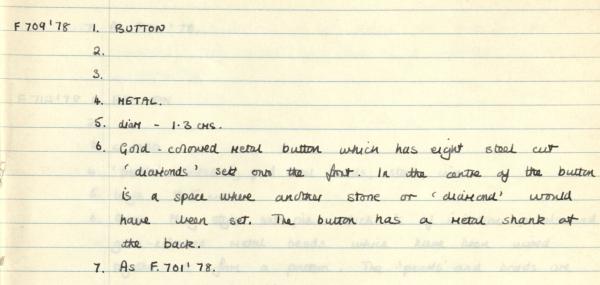 F 709'78 1. BUTTON
2.
3.
4. METAL.
5. diam - 1.3 cms.
6. Gold-coloured metal button which has eight steel cut
'diamonds' set onto the front. In the centre of the button
is a space where another stone or 'diamond' would
have been set. The button has a metal shank at
the back.
7. As F.701'78.